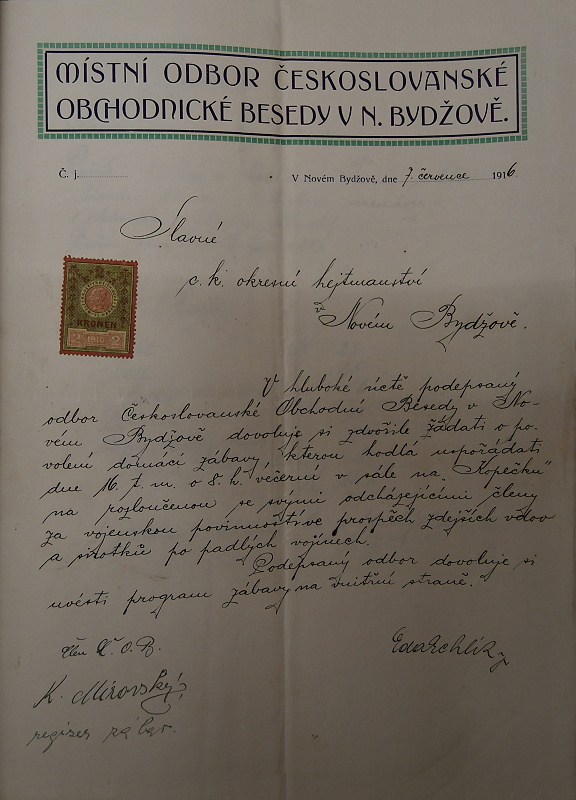 MÍSTNÍ ODBOR ČESKOSLOVANSKÉ
OBCHODNICKÉ BESEDY V N. BYDŽOVĚ.
Č. j.
V Novém Bydžově, dne 7. července 1916
Slavné
c. k. okresní hejtmanství
v
Novém Bydžově.
KRONEN
2 1910 2
V hluboké úctě podepsaný
odbor Českoslovanské Obchodní Besedy v No-
vém Bydžově dovoluje si zdvořile žádati o po-
volení domácí zábavy kterou hodlá uspořádati
dne 16. t. m. o 8. h. večerní v sále na „Kopečku"
na rozloučenou se svými odcházejícími členy
za vojenskou povinností ve prospěch zdejších vdov
a sirotků po padlých vojínech.
Podepsaný odbor dovoluje si
uvésti program zábavy na vnitřní straně.
Člen Č. O. B.
K. Mirovský